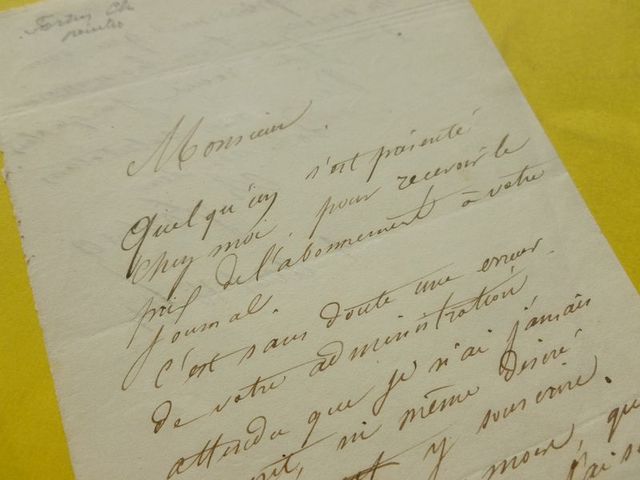 Monsieur.
Quelqu'un s'est présenté
chez moi pour recevoir le
prix de l'abonnement à votre
journal.
C'est sans doute une erreur
de votre administration
attendu que je n'ai jamais
ni même désiré
y souscrire.
moins, qu